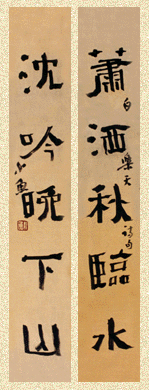 蕭洒秋臨水
白樂天詩句
沈吟晚下山